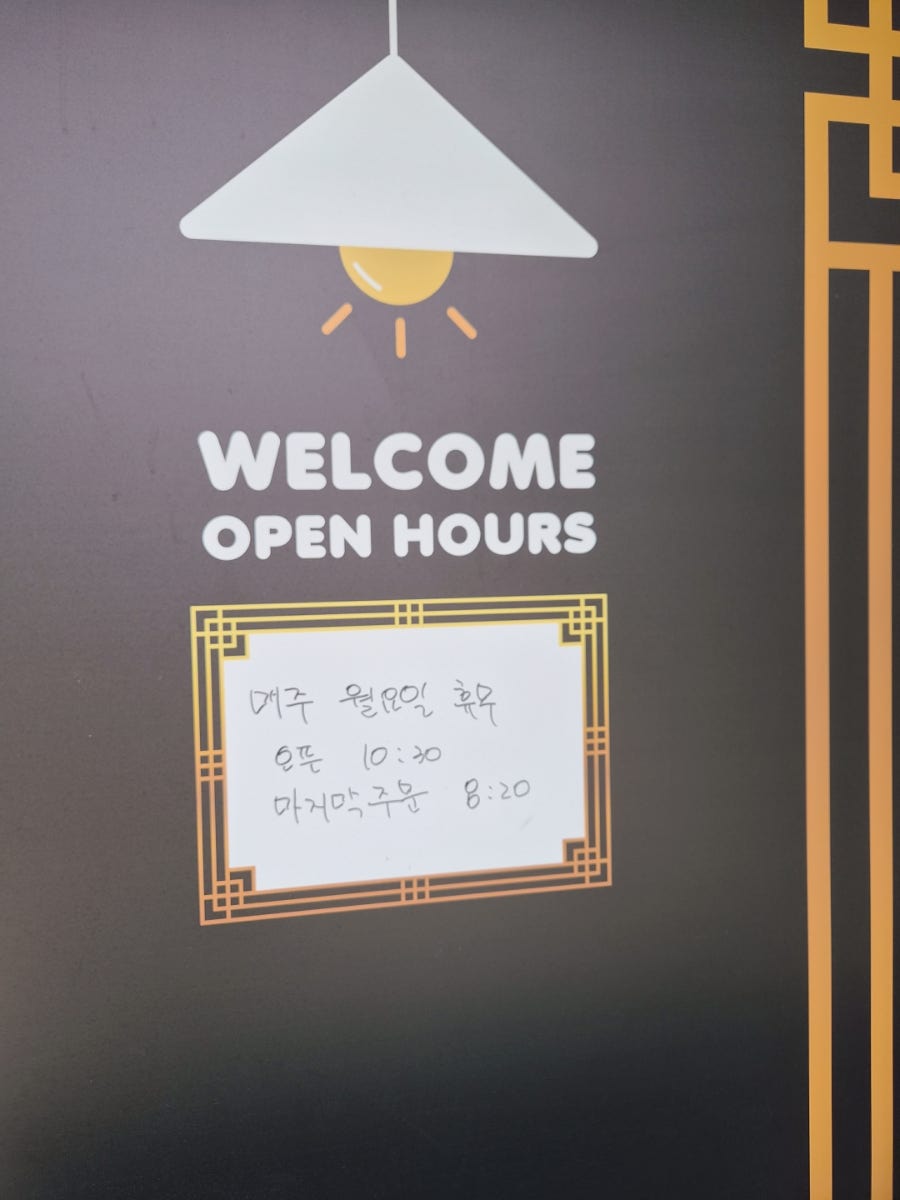 WELCOME
OPEN HOURS
매주 월요일 휴무
오픈 10:30
마지막주문 8:20